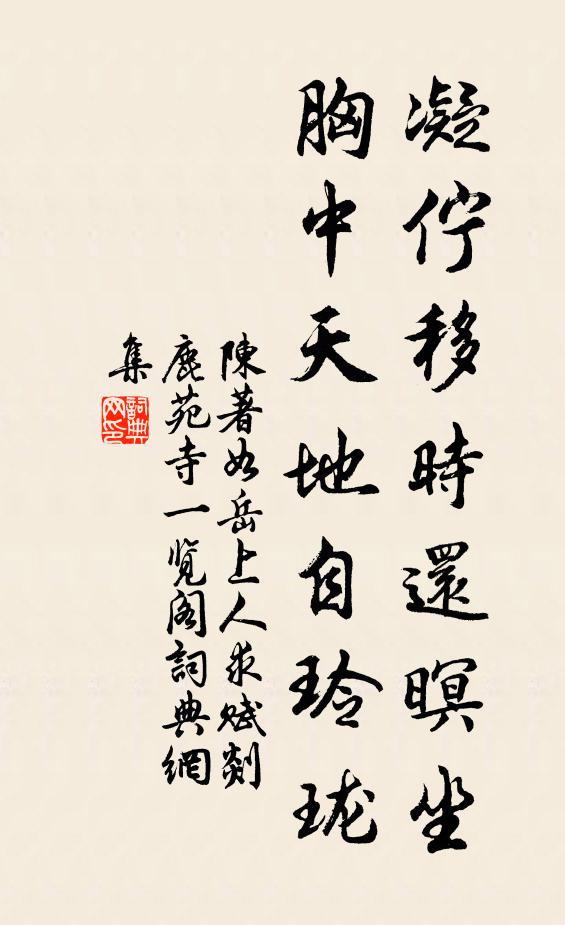 凝佇移時還暝坐
胸中天地自玲珑
陳著如岳上人求賦剡
鹿苑寺一覽阁詞典網
集
詞典
网印